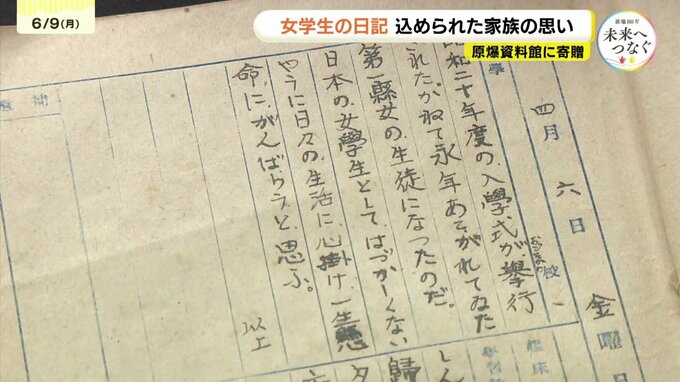 6/9(月)
女学生の日記 込められた家族の思い
原爆資料館に寄贈
被爆80年
未来へ
つなぐ
四月 六日 金曜日
和二十年度の入學式が、擧行
おこなわ
されたかねて永年あこがれてゐた
第一縣女の生徒になったのだ。
日本の女學生として、はづかしくない
やうに日々の生活に心掛け、一生懸
命に、がんばらうと思ふ。
以上
起床
歸